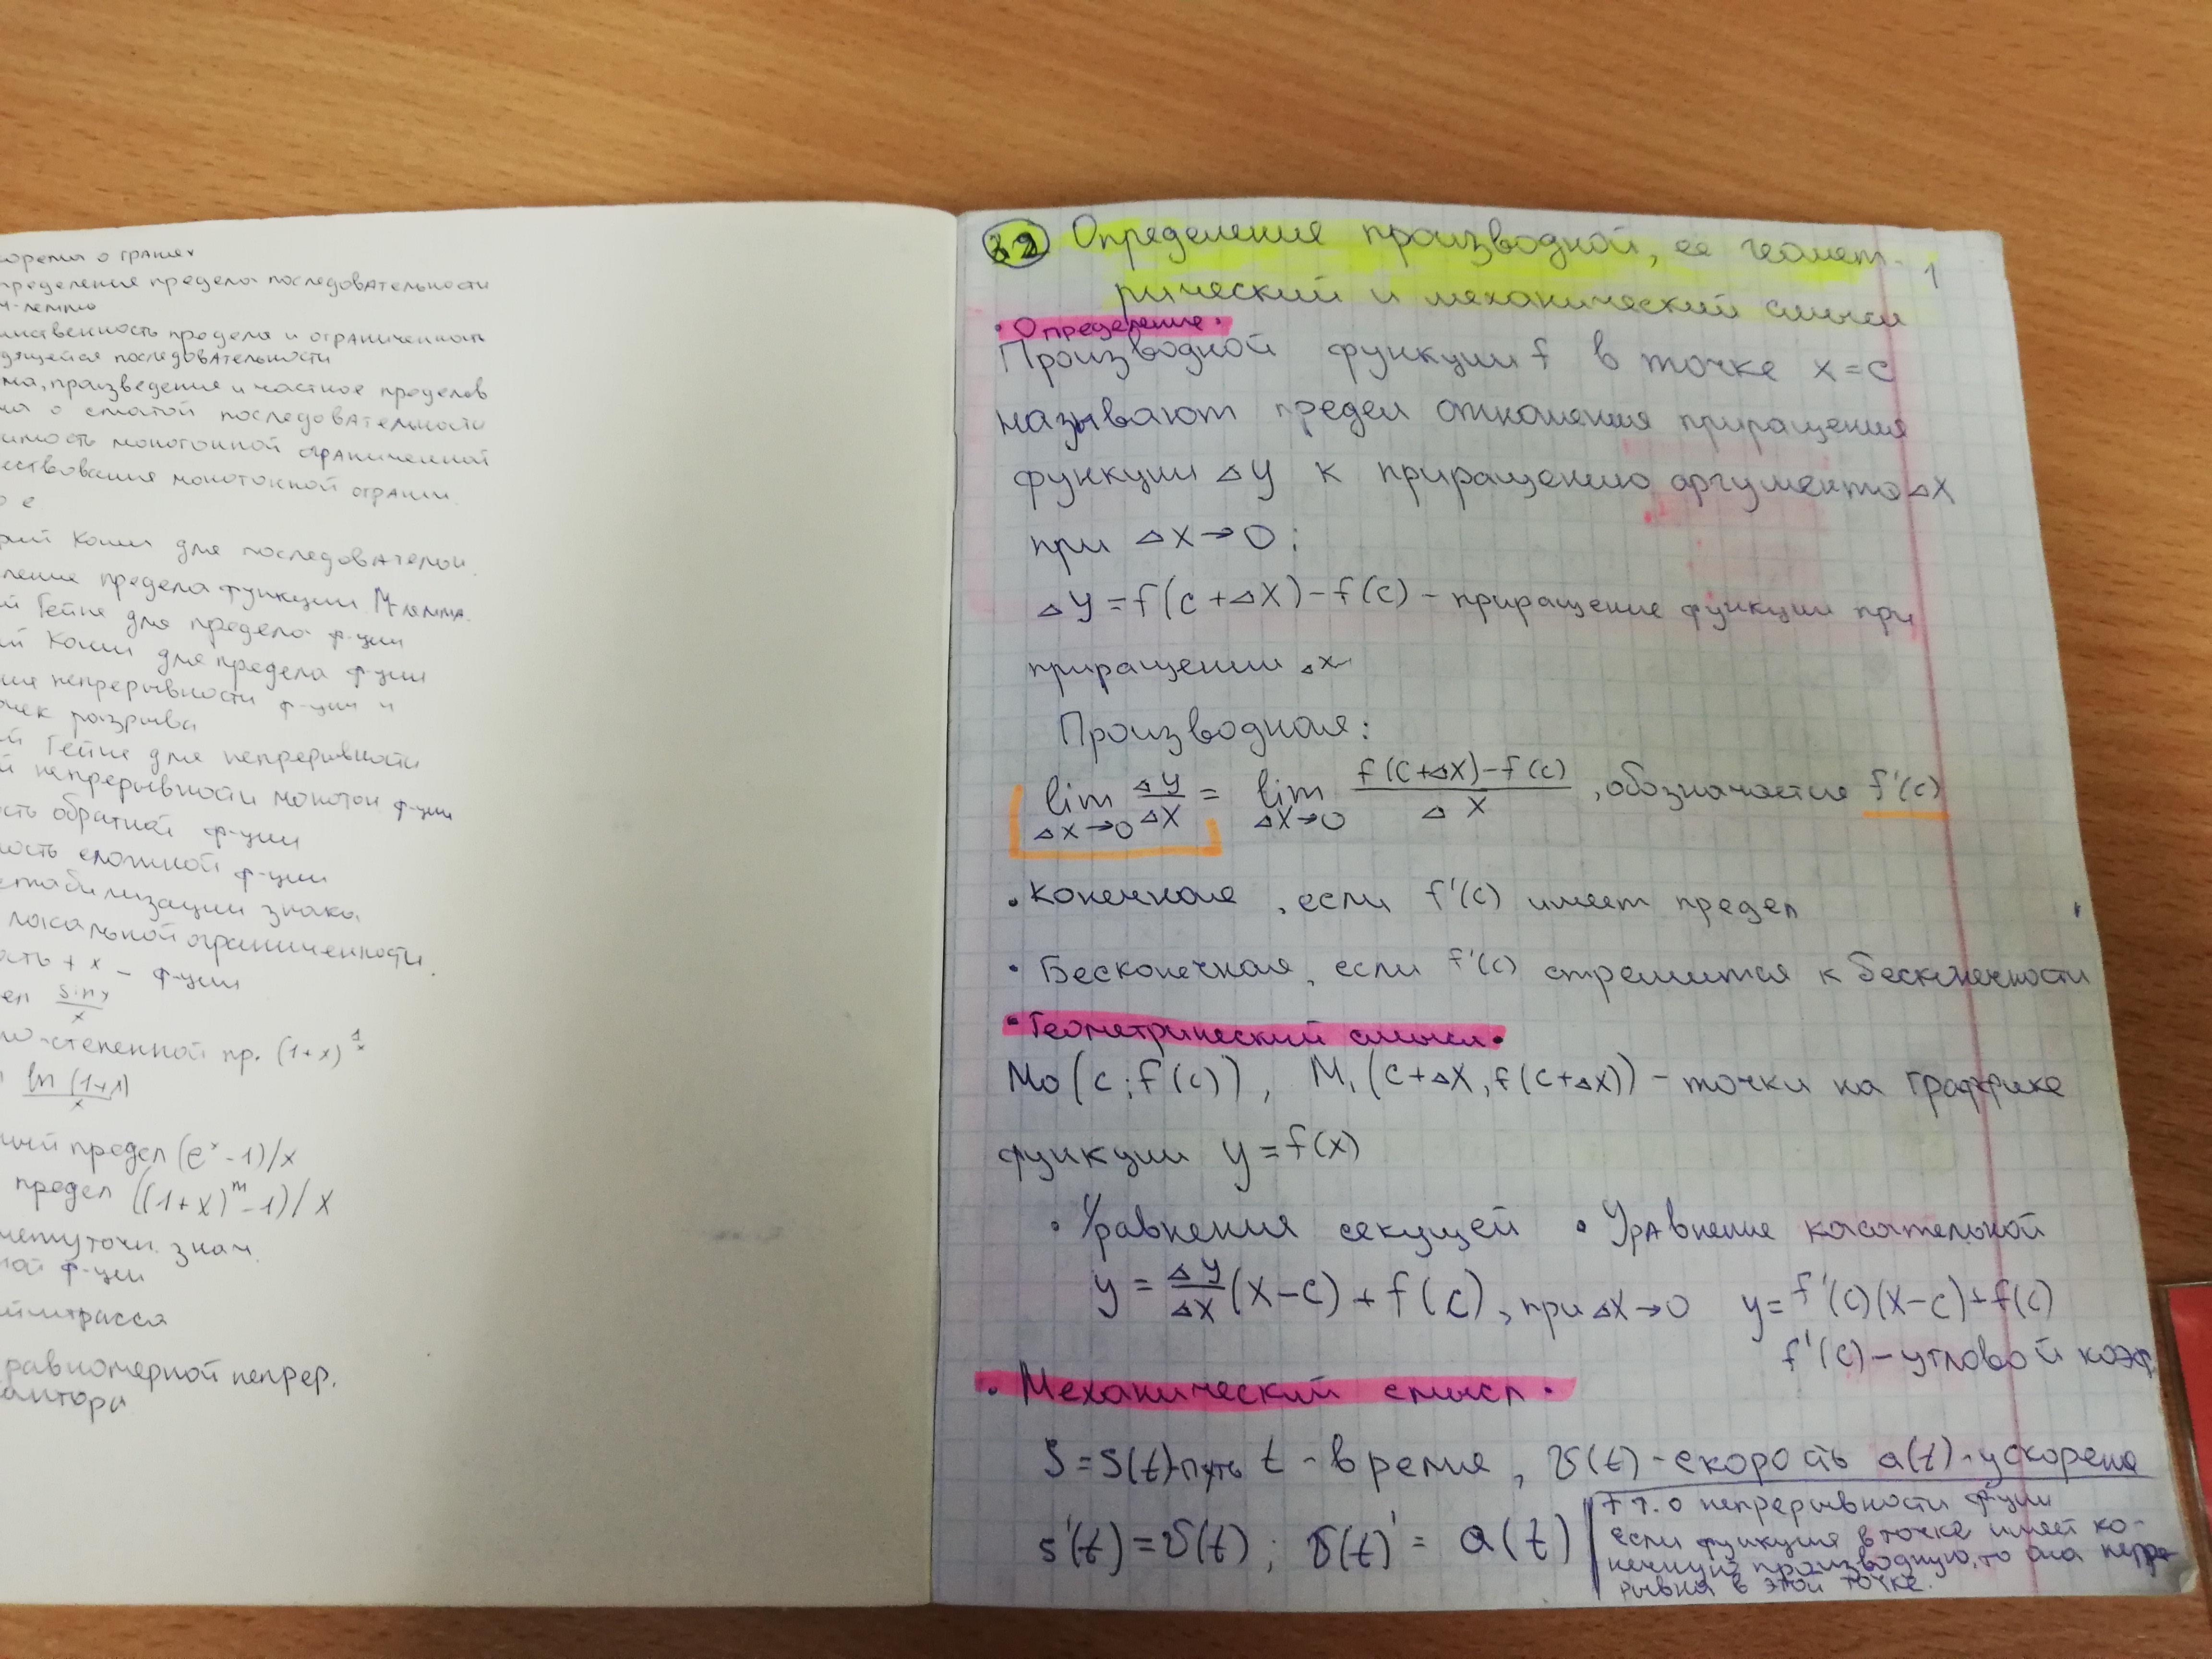 о гранях
предела последовательности
лемма
предела и ограниченность
последовательности
произведение и частное пределов
о сжатой последовательности
монотонной ограниченной
монотонной огранич.
е
Коши для последователь.
предела функции. М-лемма.
Гейне для предела ф-ции
Коши для предела ф-ции
непрерывности ф-ции и
разрыва
Гейне для непрерывности
непрерывности монотон. ф-ции
обратной ф-ции
сложной ф-ции
стабилизации знака
локальной ограниченности.
+ x - ф-ции
sinx/x
степенной пр. (1+x)^1/x
ln(1+x)/x
предел (e^x-1)/x
предел ((1+x)^m-1)/x
знач.
ф-ции
равномерной непрер.
32 Определение производной, ее геомет- 1
рический и механический смысл
• Определение •
Производной функции f в точке x=c
называют предел отношения приращения
функции Δy к приращению аргумента Δx
при Δx→0;
Δy=f(c+Δx)-f(c) - приращение функции при
приращении Δx
Производная:
lim Δx→0 Δy/Δx = lim Δx→0 f(c+Δx)-f(c)/Δx, обозначается f'(c)
• Конечная, если f'(c) имеет предел
• Бесконечная, если f'(c) стремится к бесконечности
• Геометрический смысл •
M0(c; f(c)), M1(c+Δx, f(c+Δx)) - точки на графике
функции y=f(x)
• Уравнения секущей • Уравнение касательной
y = Δy/Δx (x-c) + f(c), при Δx→0 y=f'(c)(x-c)+f(c)
f'(c) - угловой коэф.
• Механический смысл •
S=S(t)-путь t - время, v(t) - скорость a(t) - ускорение
s'(t)=v(t); v(t)' = a(t)
о непрерывности ф-ции
если функция в точке имеет ко-
нечную производную, то она непре-
рывна в этой точке.